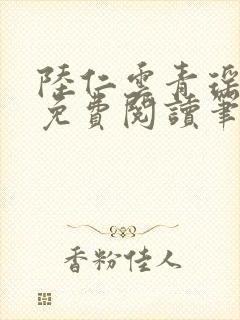 陸仁雲青瑤
免費閱讀筆
香粉佳人